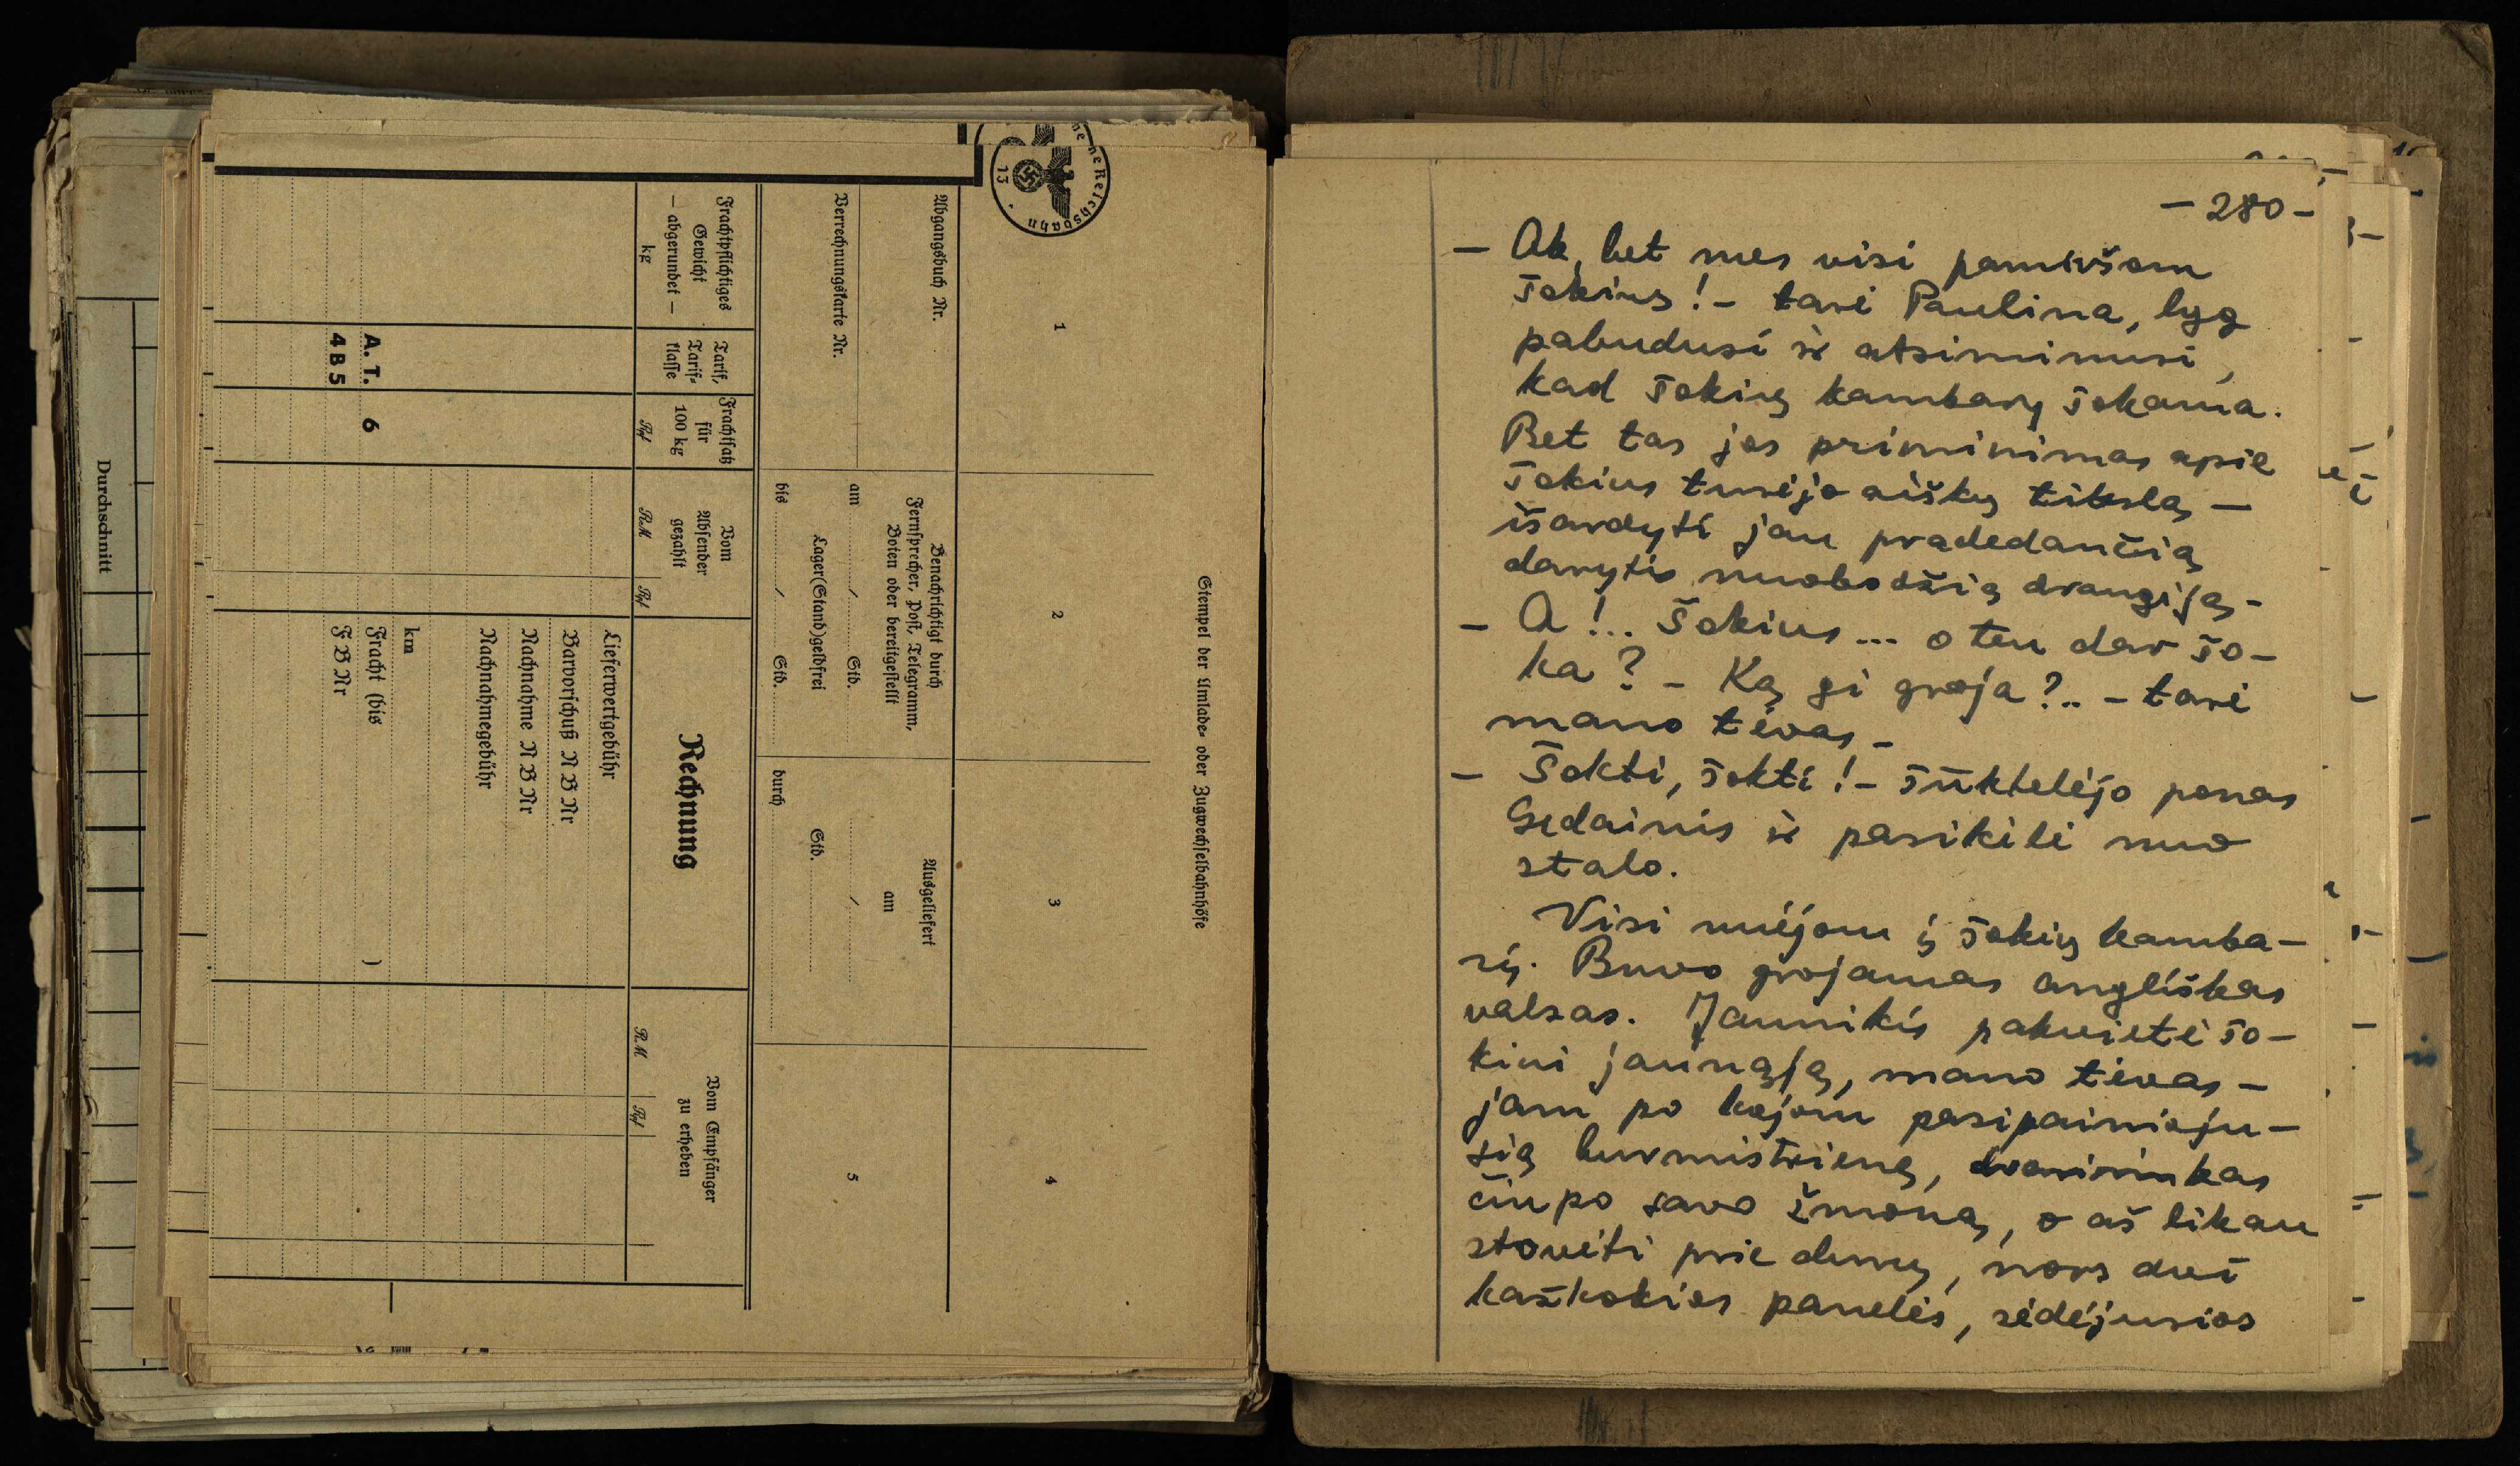 Durchschnitt
Stempel der Umlade- oder Zugwechselbahnhöfe
1
2
3
4
Reichsbahn
13
Abgangsbuch Nr.
Verrechnungskarte Nr.
Benachrichtigt durch
Fernsprecher, Post, Telegramm,
Boten oder bereitgestellt
am / Std.
Lager(Stand)geldfrei
bis / Std.
Ausgeliefert
am
/
Std.
durch
5
Frachtpflichtiges
Gewicht
— abgerundet —
kg
Tarif,
Tarif-
klasse
Frachtsatz
für
100 kg
Rpf
Vom
Absender
gezahlt
RM
Rpf
Rechnung
Vom Empfänger
zu erheben
RM
Rpf
Lieferwertgebühr
Barvorschuß N B Nr
Nachnahme N B Nr
Nachnahmegebühr
km
A. T. 6
Fracht (bis )
4 B 5
F B Nr
— 280 —
— Ak, bet mes visi pamiršom
šokius! – tarė Paulina, lyg
pabudusi ir atsiminusi,
kad šokių kambary šokama.
Bet tas jos priminimas apie
šokius turėjo aiškų tikslą —
išardyti jau pradedančią
darytis nuobodžią draugiją. –
— A!.. Šokius... o ten dar šo-
ka? – Ką gi groja?.. – tarė
mano tėvas. –
— Šokti, šokti! – šūktelėjo ponas
Gedainis ir pasikėlė nuo
stalo.
Visi nuėjom į šokių kamba-
rį. Buvo grojamas angliškas
valsas. Jaunikis pakvietė šo-
kiui jaunąją, mano tėvas –
jam po kojom pasipainioju-
sią burmistrienę, dvarininkas
čiupo savo žmoną, o aš likau
stovėti prie durų, nors dvi
kažkokios panelės, sėdėjusios